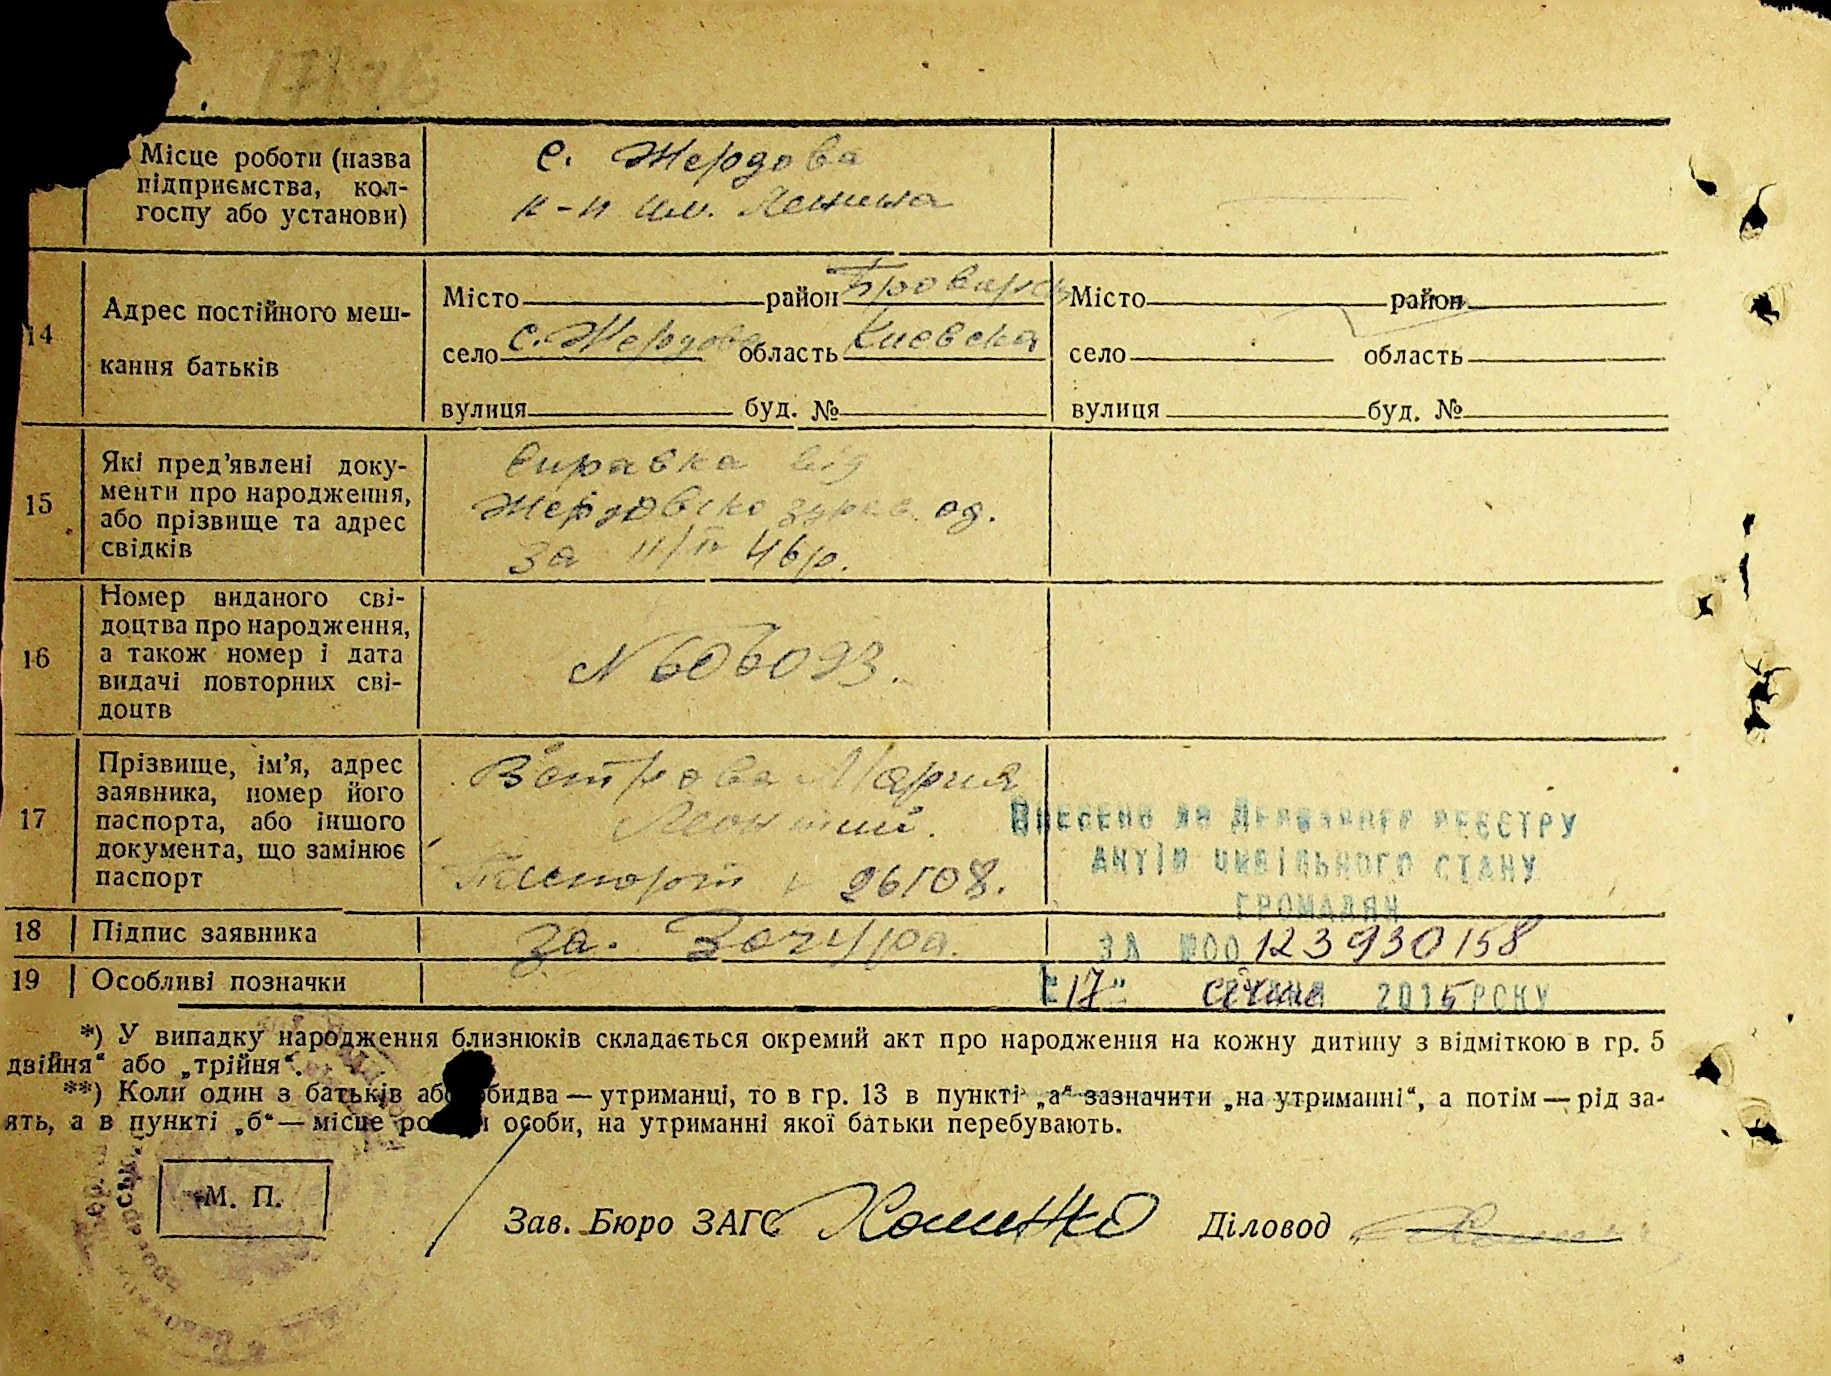 Місце роботи (назва
підприємства, кол-
госпу або установи)
с. Жердова
к-п им. Ленина
14
Адрес постійного меш-
кання батьків
Місто район Броварск
село с. Жердова область Киевска
вулиця буд. №
Місто район
село область
вулиця буд. №
15
Які пред’явлені доку-
менти про народження,
або прізвище та адрес
свідків
Справка від
за 11/IV 46р.
16
Номер виданого сві-
доцтва про народження,
а також номер і дата
видачі повторних сві-
доцтв
N 606093.
17
Прізвище, ім’я, адрес
заявника, номер його
паспорта, або іншого
документа, що замінює
паспорт
Мария
Паспорт 26108.
Внесено до Державного реєстру
актів цивільного стану
громадян
за №00 123930158
"17" січня 2015 року
18 Підпис заявника
за.
19 Особливі позначки
*) У випадку народження близнюків складається окремий акт про народження на кожну дитину з відміткою в гр. 5
двійня“ або „трійня“.
**) Коли один з батьків або обидва — утриманці, то в гр. 13 в пункті „а“ зазначити „на утриманні“, а потім — рід за-
ять, а в пункті „б“ — місце особи, на утриманні якої батьки перебувають.
М. П.
Зав. Бюро ЗАГС Діловод